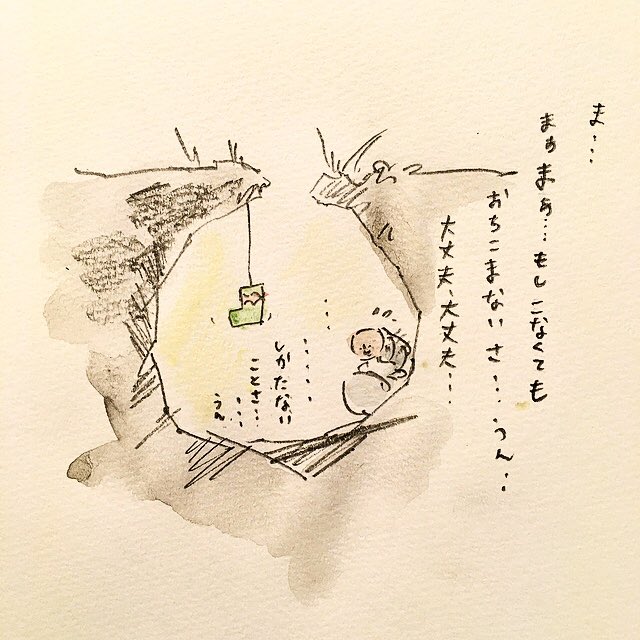 ま・・・
まぁまぁ・・・もしこなくても
おちこまないさ・・・うん・・
大丈夫、大丈夫・・・
・・・
・・・・・
しかたない
ことさ・・・
・・・
うん